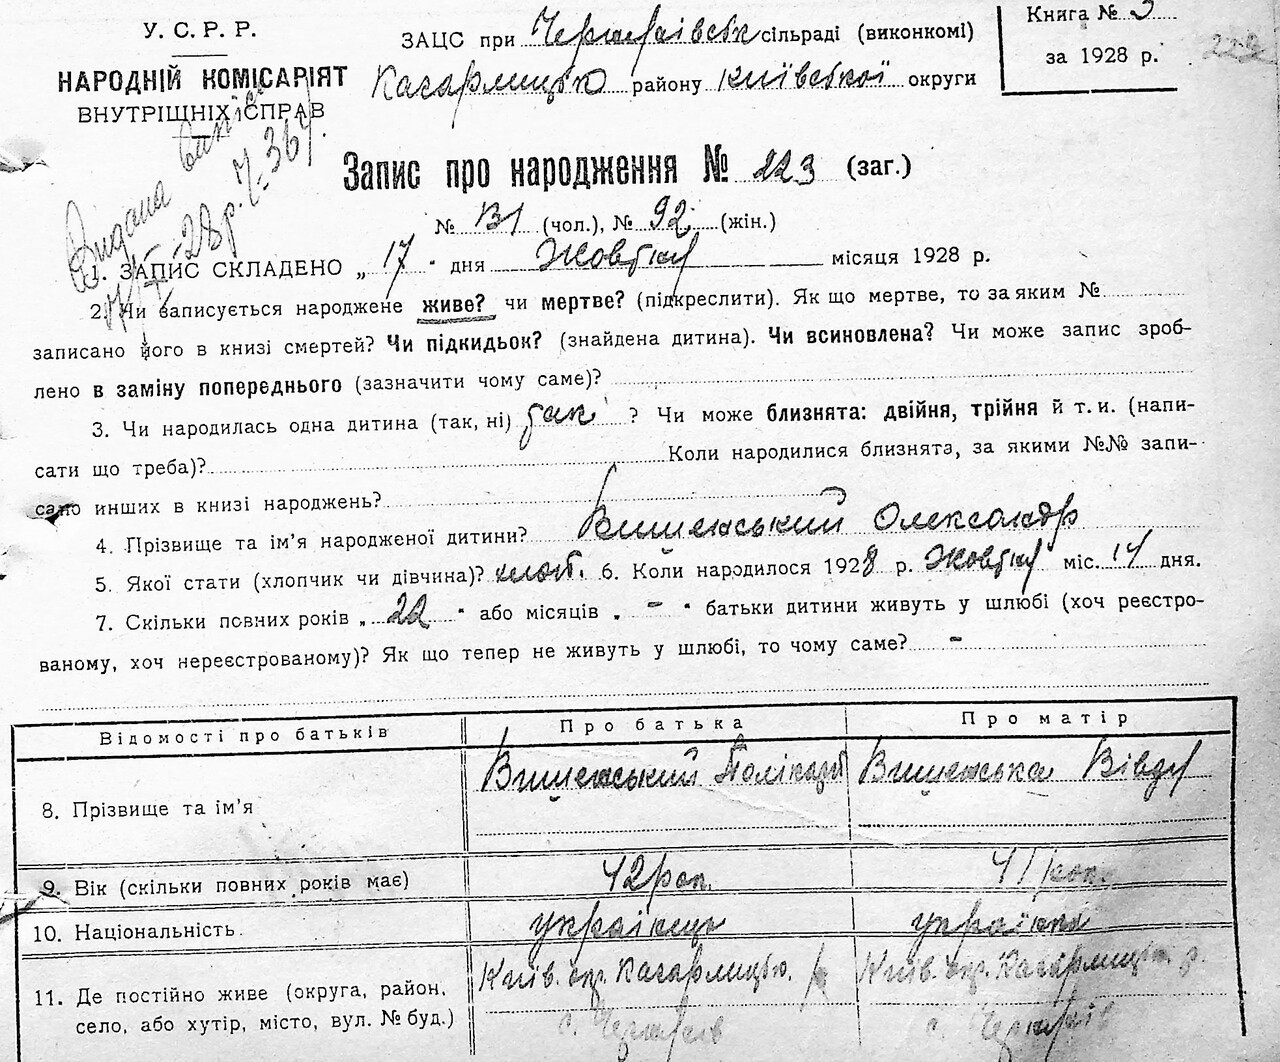 У. С. Р. Р.
НАРОДНІЙ КОМІСАРІЯТ
ВНУТРІШНІХ СПРАВ
ЗАЦС при сільраді (виконкомі)
Кагарлицько району Київської округи
Книга № 3
за 1928 р.
Видана
Запис про народження № 223 (заг.)
№ 131 (чол.), № 92 (жін.)
1. ЗАПИС СКЛАДЕНО „ 17 " дня Жовтня місяця 1928 р.
2. Чи записується народжене живе? чи мертве? (підкреслити). Як що мертве, то за яким №
записано його в книзі смертей? Чи підкидьок? (знайдена дитина). Чи всиновлена? Чи може запис зроб-
лено в заміну попереднього (зазначити чому саме)?
3. Чи народилась одна дитина (так, ні) так ? Чи може близнята: двійня, трійня й т. и. (напи-
сати що треба)? Коли народилися близнята, за якими №№ запи-
сано инших в книзі народжень?
4. Прізвище та ім'я народженої дитини? Вишенський Олександр
5. Якої стати (хлопчик чи дівчина)? хлоп. 6. Коли народилося 1928 р. Жовтня міс. 14 дня.
7. Скільки повних років „ 22 " або місяців „ - " батьки дитини живуть у шлюбі (хоч реєстро-
ваному, хоч нереєстрованому)? Як що тепер не живуть у шлюбі, то чому саме? -
Відомості про батьків Про батька Про матір
8. Прізвище та ім'я Вишенський Полікарп Вишенська Вівдя
9. Вік (скільки повних років має) 42 рок. 41 рок.
10. Національність українець українка
11. Де постійно живе (округа, район, Київ. окр. Кагарлицьк. р. Київ. окр. Кагарлицьк. р.
село, або хутір, місто, вул. № буд.) с. с.